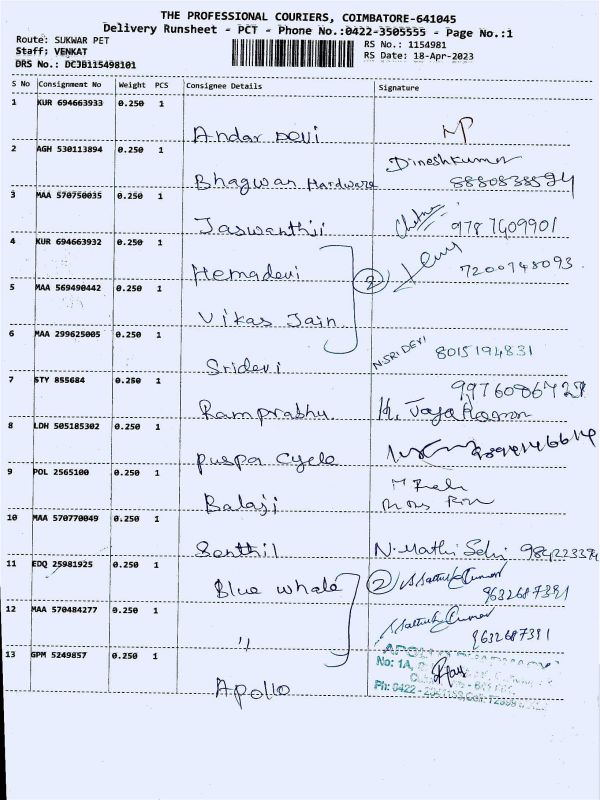 THE PROFESSIONAL COURIERS, COIMBATORE-641045
Delivery Runsheet - PCT - Phone No.:0422-3505555 - Page No.:1
Route: SUKWAR PET
Staff: VENKAT
DRS No.: DCJB115498101
RS No.: 1154981
RS Date: 18-Apr-2023
S No Consignment No Weight PCS Consignee Details Signature
1 KUR 694663933 0.250 1
Andar Devi
2 AGH 530113894 0.250 1
Bhagwan Hardware Dineshkumar
8880838594
3 MAA 570750035 0.250 1
Jaswanthii 9787409901
4 KUR 694663932 0.250 1
Hemadevi 2 7200748093
5 MAA 569490442 0.250 1
Vikas Jain
6 MAA 299625005 0.250 1
Sridevi N.SRIDEVI 8015194831
7 STY 855684 0.250 1
Ramprabhu
8 LDH 505185302 0.250 1
puspa cycle
9 POL 2565100 0.250 1
Balaji
10 MAA 570770049 0.250 1
Senthil N. Mathi Selvi
11 EDQ 25981925 0.250 1
Blue whale 2 9632687391
12 MAA 570484277 0.250 1
" 9632687391
13 GPM 5249857 0.250 1
Apollo
No: 1A,
Ph: 0422 -